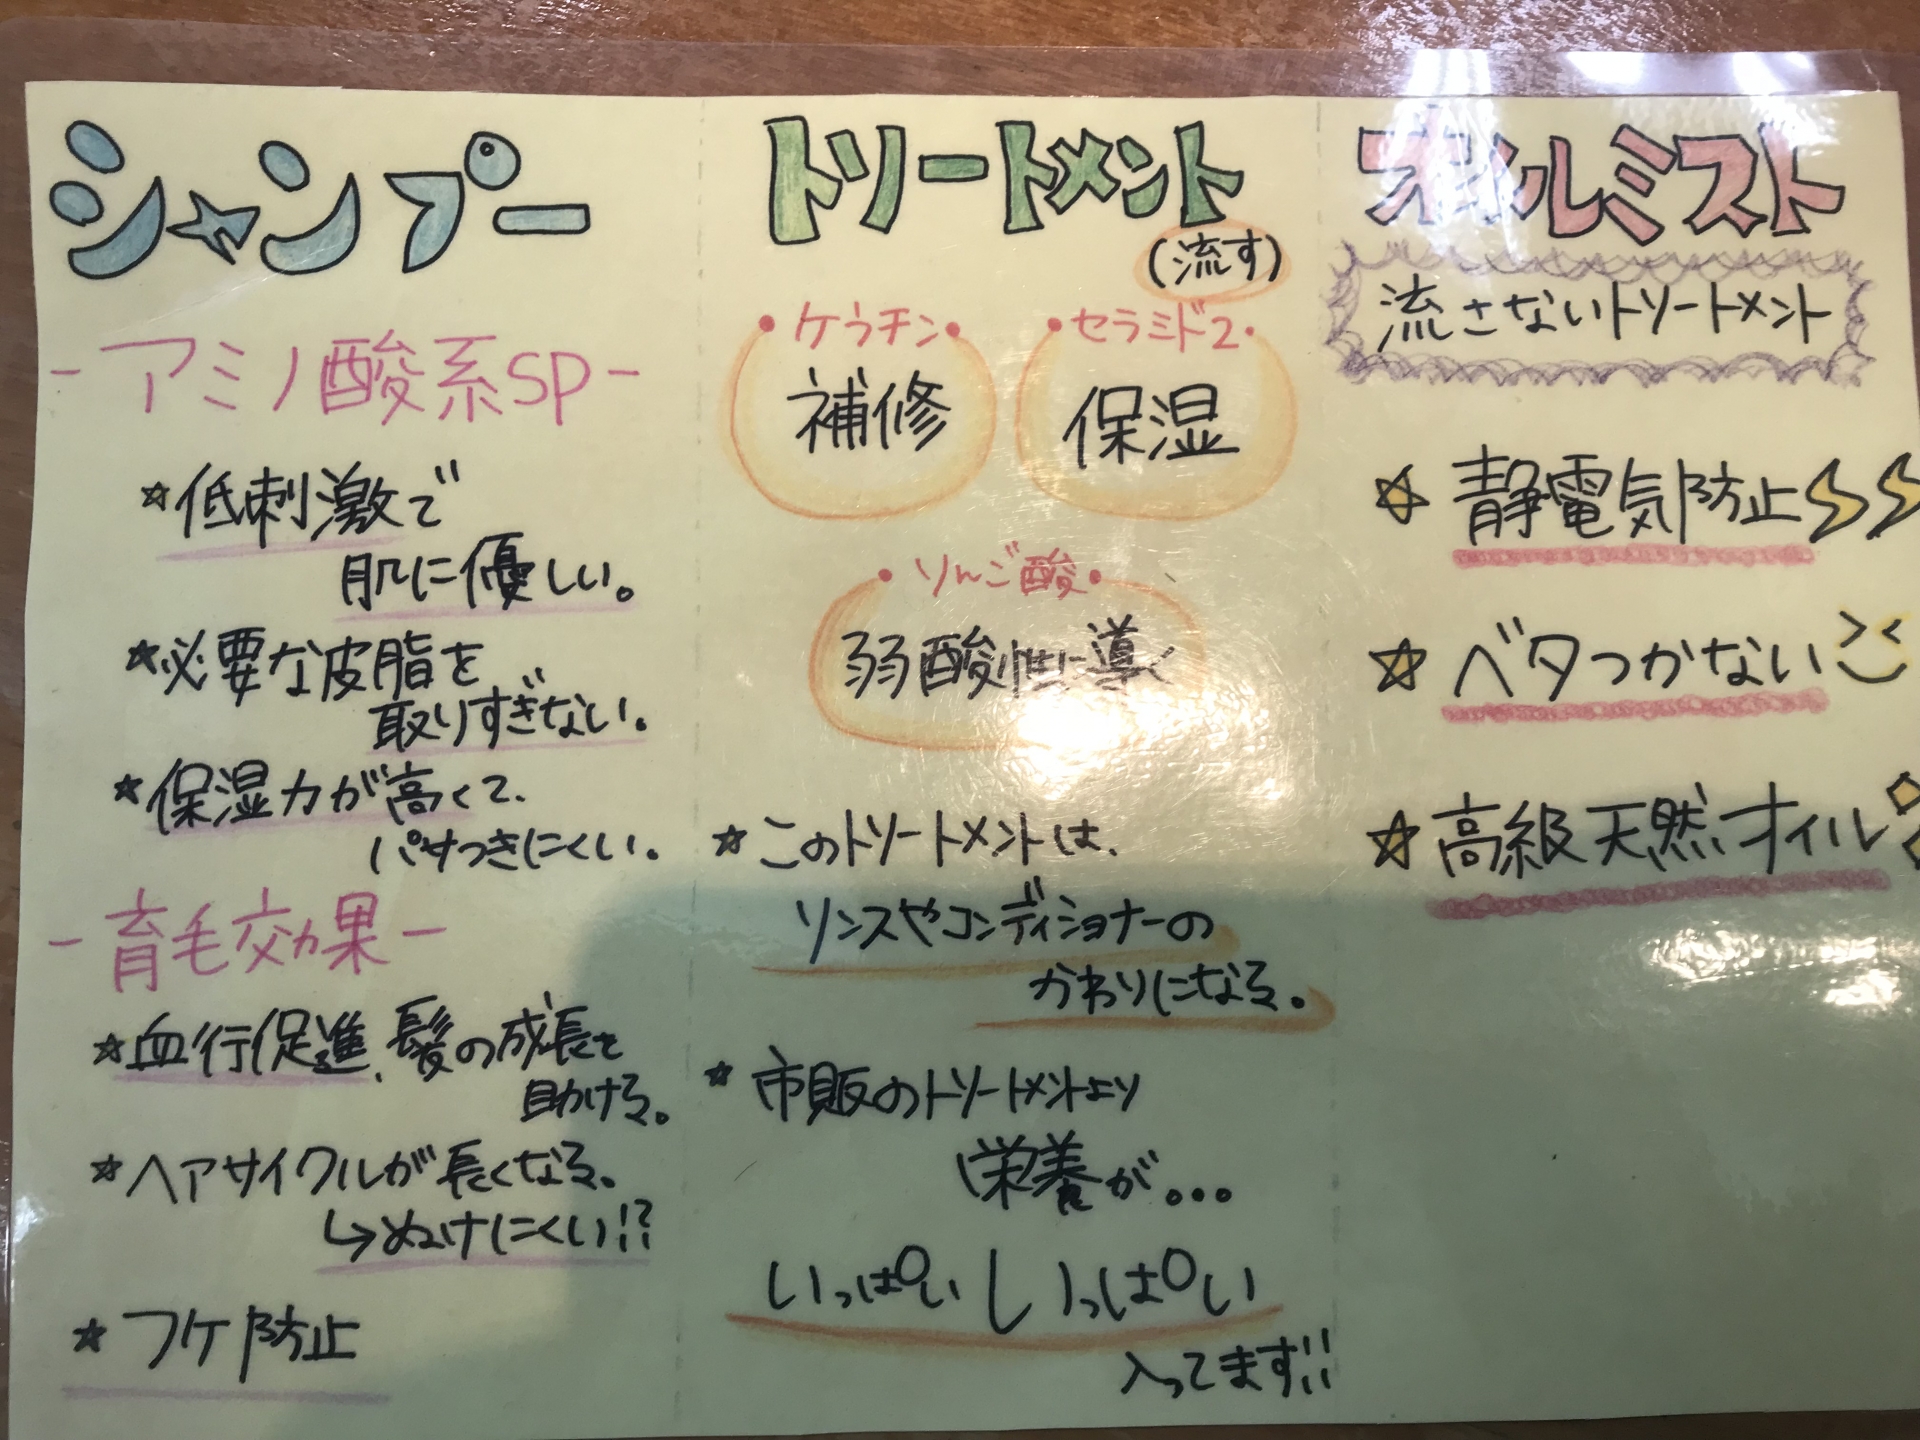 シャンプー
-アミノ酸系SP-
☆低刺激で
肌に優しい。
☆必要な皮脂を
取りすぎない。
☆保湿力が高くて、
パサつきにくい。
-育毛効果-
☆血行促進、髪の成長を
助ける。
☆ヘアサイクルが長くなる。
↳ぬけにくい!?
☆フケ防止
トリートメント
(流す)
・ケラチン・
補修
・セラミド2・
保湿
・りんご酸・
弱酸性に導く
☆このトリートメントは、
リンスやコンディショナーの
かわりになる。
☆市販のトリートメントより
栄養が...
いっぱい いっぱい
入ってます!!
オイルミスト
流さないトリートメント
☆静電気防止
☆ベタつかない
☆高級天然オイル